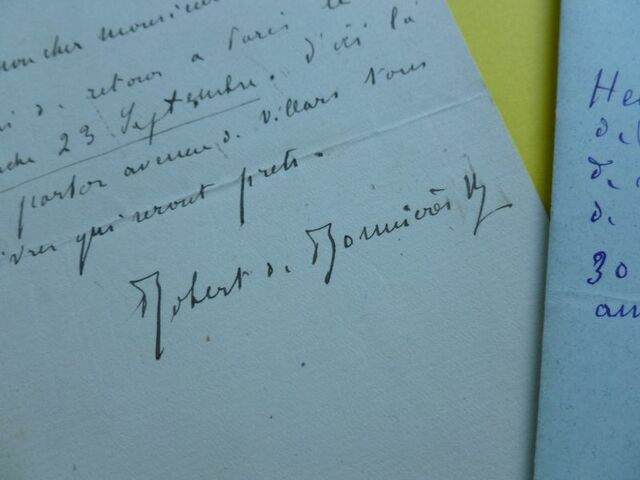 mon cher monsieur
de retour à Paris le
23 Septembre. d'ici là
porter avenue de Villars tous
qui seront prêts.
Robert de Bonnières
He
de
de
de
30
am